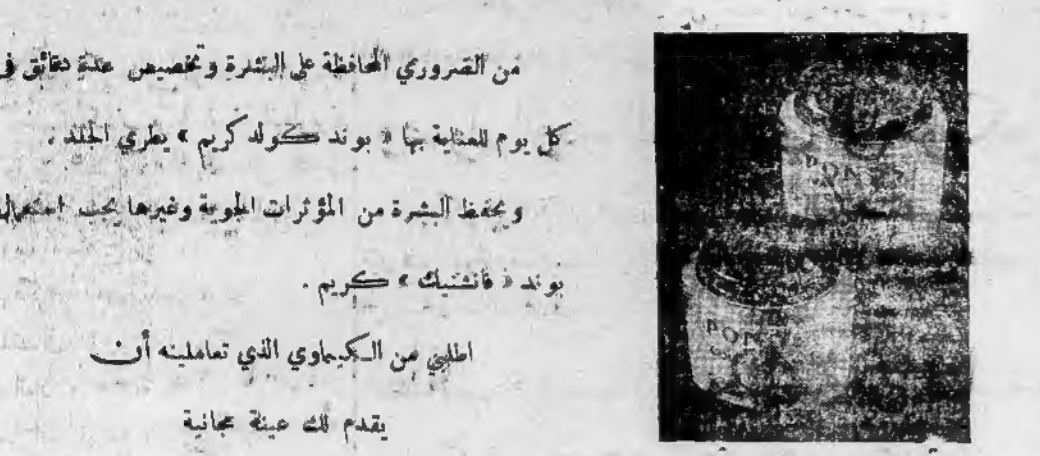 من الضروري المحافظة على البشرة وتخصيص عدة دقائق في
كل يوم للعناية بها « بوند كولد كريم » يطري الجلد .
ويحفظ البشرة من المؤثرات الجوية وغيرها يجب استعمال
بوند « فانشنيك » كريم .
اطلبي من الكيماوي الذي تعاملينه أن
يقدم لك عينة مجانية